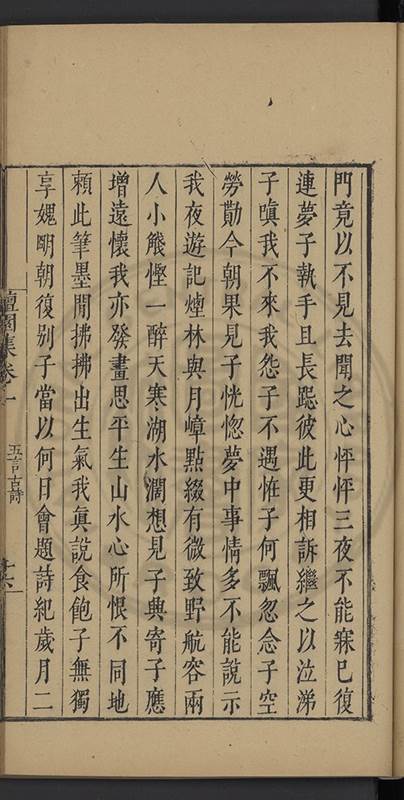 門竟以不見去聞之心怦怦三夜不能寐已復
連夢子執手且長跽彼此更相訴繼之以泣涕
子嗔我不來我怨子不遇恠子何飄忽念子空
勞勩今朝果見子恍惚夢中事情多不能說示
我夜遊記煙林與月嶂點綴有微致野航容兩
人小艤慳一醉天寒湖水濶想見子興寄子應
增遠懷我亦發畫思平生山水心所恨不同地
頼此筆墨間拂拂出生氣我真說食飽子無獨
享媿明朝復別子當以何日會題詩紀歲月二
檀園集卷一
五言古詩
十六